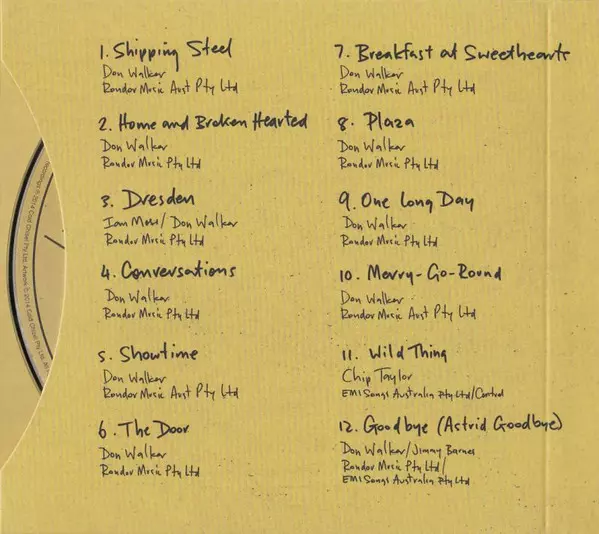 1. Shipping Steel
Don Walker
Rondor Music Aust Pty Ltd
2. Home and Broken Hearted
Don Walker
Rondor Music Pty Ltd
3. Dresden
Ian Moss/Don Walker
Rondor Music Pty Ltd
4. Conversations
Don Walker
Rondor Music Pty Ltd
5. Showtime
Don Walker
Rondor Music Aust Pty Ltd
6. The Door
Don Walker
Rondor Music Pty Ltd
7. Breakfast at Sweethearts
Don Walker
Rondor Music Aust Pty Ltd
8. Plaza
Don Walker
Rondor Music Pty Ltd
9. One Long Day
Don Walker
Rondor Music Pty Ltd
10. Merry-Go-Round
Don Walker
Rondor Music Aust Pty Ltd
11. Wild Thing
Chip Taylor
EMI Songs Australia Pty Ltd/Control
12. Goodbye (Astrid Goodbye)
Don Walker/Jimmy Barnes
Rondor Music Pty Ltd/
EMI Songs Australia Pty Ltd
2014 Cold Chisel Pty Ltd. Artwork © 2014 Cold Chisel Pty Ltd.